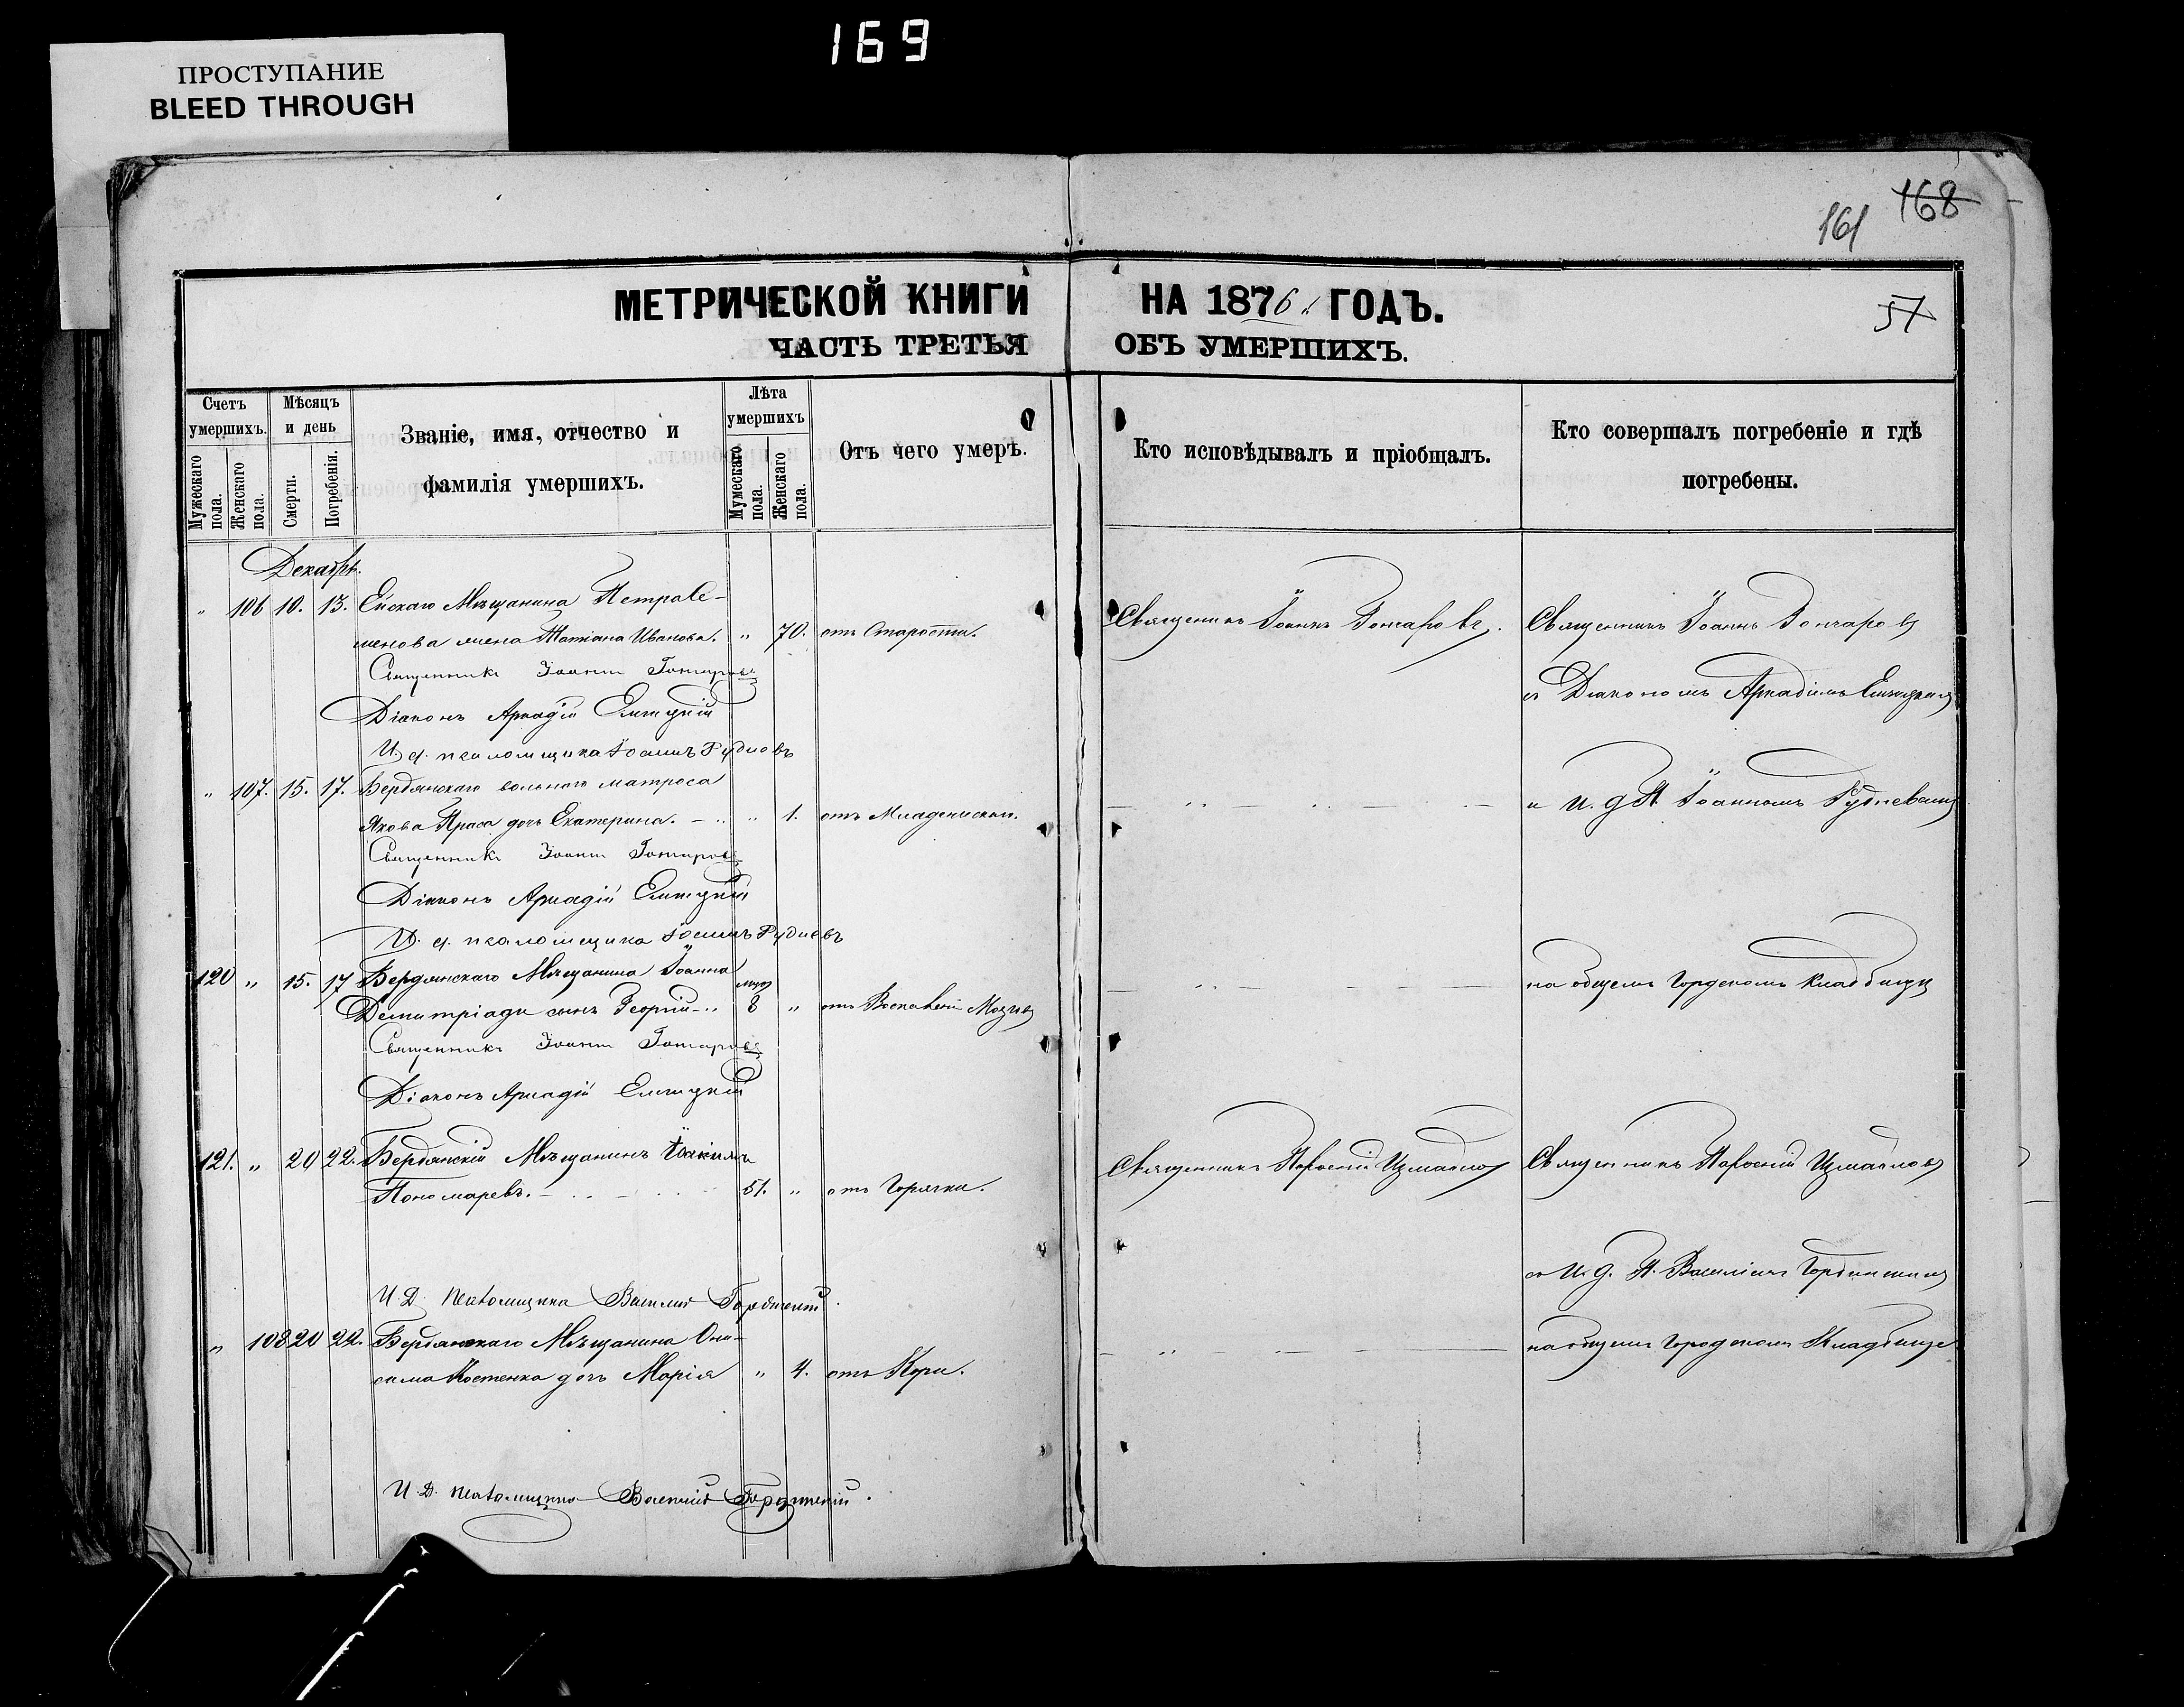 169
ПРОСТУПАНИЕ
BLEED THROUGH
168
161
57
МЕТРИЧЕСКОЙ КНИГИ НА 1876 ГОДЪ.
ЧАСТЬ ТРЕТЬЯ ОБЪ УМЕРШИХЪ.
Счетъ умершихъ.
Мужескаго пола.
Женскаго пола.
Мѣсяцъ и день
Смерти.
Погребенія.
Званіе, имя, отчество и
фамилія умершихъ.
Лѣта умершихъ
Мужескаго пола.
Женскаго пола.
Отъ чего умеръ.
Кто исповѣдывалъ и пріобщалъ.
Кто совершалъ погребеніе и гдѣ
погребены.
Декабрь.
" 106 10. 13. Ейскаго Мѣщанина Петра Се-
менова жена Татіана Иванова. " 70. отъ Старости.
Священникъ Іоаннъ Гончаровъ.
Священникъ Іоаннъ Гончаровъ
Священникъ Іоаннъ Гончаровъ
съ Діакономъ Аркадіемъ
Діаконъ Аркадій
И. д. псаломщика Іоаннъ Рудневъ
" 107. 15. 17. Бердянскаго вольнаго матроса
и И. д. П. Іоанномъ Рудневымъ
Якова Праса дочь Екатерина. " 1. отъ Младенческой.
Священникъ Іоаннъ Гончаровъ
Діаконъ Аркадій
И. д. псаломщика Іоаннъ Рудневъ
120 " 15. 17 Бердянскаго Мѣщанина Іоанна
Димитріади сынъ Георгій 8 " отъ Мозга
на общемъ Городскомъ Кладбищѣ
Священникъ Іоаннъ Гончаровъ
Діаконъ Аркадій
121. " 20 22. Бердянскій Мѣщанинъ Іоакимъ
Пономаревъ. 51. " отъ Горячки.
Священникъ Парѳеній Измаиловъ
Священникъ Парѳеній Измаиловъ
съ И. д. П. Василіемъ
И. Д. Псаломщика Василій
" 108 20 22. Бердянскаго Мѣщанина Они-
сима Костенка дочь Марія " 4. отъ Кори.
на общемъ Городскомъ Кладбище
И. Д. Псаломщика Василій